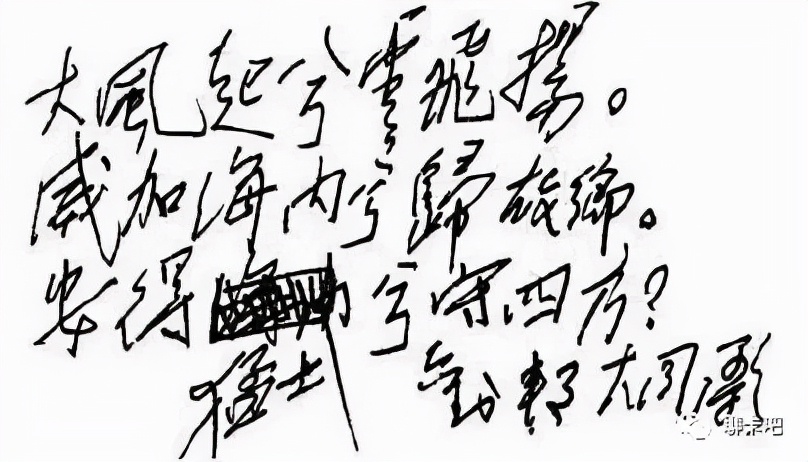 大風起兮雲飛揚。
威加海内兮歸故鄉。
安得兮守四方？
猛士
劉邦大风歌
聊天吧